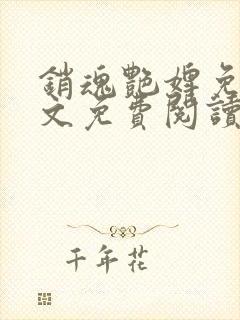 銷魂艷婢免
文免費閱讀
千年花